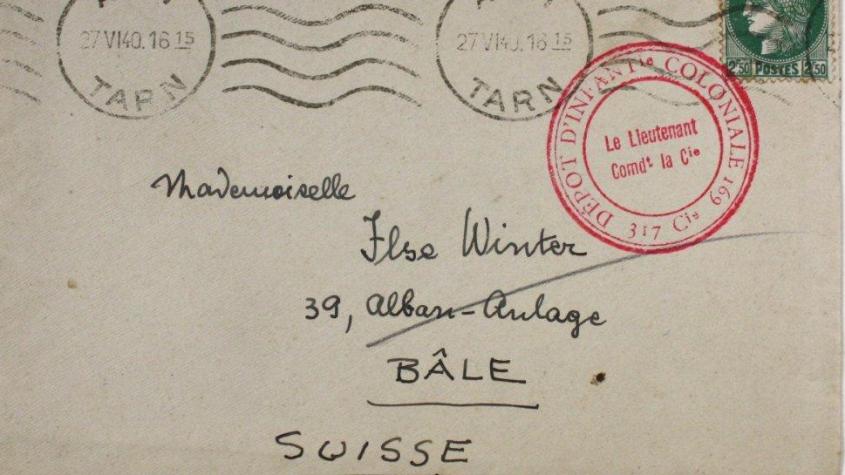 27 VI 40. 16 15
TARN
27 VI 40. 16 15
TARN
2F50 POSTES 2F50
DÉPOT D'INFANTie COLONIALE 169
317 Cie
Le Lieutenant
Comdt la Cie
Mademoiselle
Ilse Winter
39, Alban-Anlage
BÂLE
SUISSE